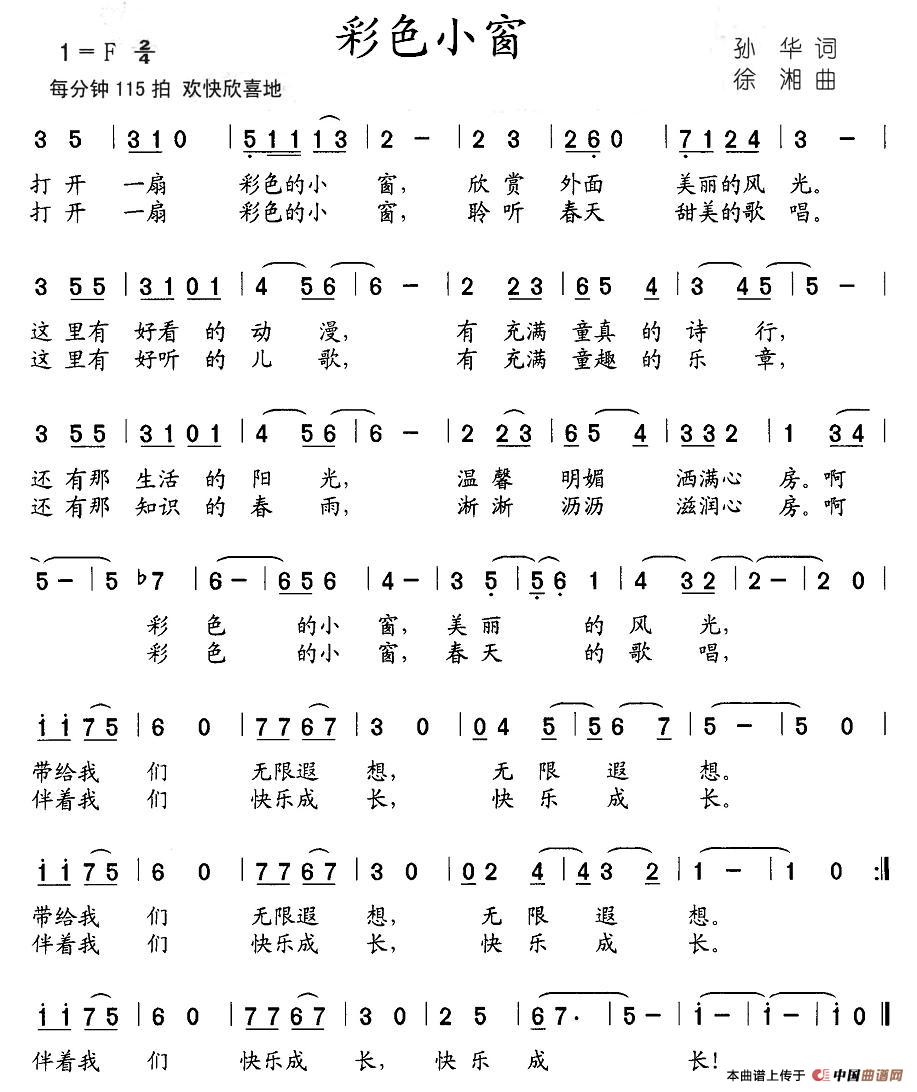 彩色小窗
1=F 2/4
孙 华 词
每分钟 115 拍 欢快欣喜地
徐 湘 曲
3 5 | 3 1 0 | 5 1 1 1 3 | 2 − | 2 3 | 2 6 0 | 7 1 2 4 | 3 − |
打 开 一扇 彩色的小 窗， 欣 赏 外面 美丽的风 光。
打 开 一扇 彩色的小 窗， 聆 听 春天 甜美的歌 唱。
3 5 5 | 3 1 0 1 | 4 5 6 | 6 − | 2 2 3 | 6 5 4 | 3 4 5 | 5 − |
这 里有 好看 的 动 漫， 有 充满 童真 的 诗 行，
这 里有 好听 的 儿 歌， 有 充满 童趣 的 乐 章，
3 5 5 | 3 1 0 1 | 4 5 6 | 6 − | 2 2 3 | 6 5 4 | 3 3 3 2 | 1 3 4 |
还 有那 生活 的 阳 光， 温 馨 明媚 洒满心 房。啊
还 有那 知识 的 春 雨， 淅 淅 沥沥 滋润心 房。啊
5 − | 5 ♭7 | 6 − | 6 5 6 | 4 − | 3 5 | 5 6 1 | 4 3 2 | 2 − | 2 0 |
彩 色 的小 窗， 美 丽 的 风 光，
彩 色 的小 窗， 春 天 的 歌 唱，
i i 7 5 | 6 0 | 7 7 6 7 | 3 0 | 0 4 5 | 5 6 7 | 5 − | 5 0 |
带给我 们 无限遐 想， 无 限 遐 想。
伴着我 们 快乐成 长， 快 乐 成 长。
i i 7 5 | 6 0 | 7 7 6 7 | 3 0 | 0 2 4 | 4 3 2 | 1 − | 1 0 :‖
带给我 们 无限遐 想， 无 限 遐 想。
伴着我 们 快乐成 长， 快 乐 成 长。
i i 7 5 | 6 0 | 7 7 6 7 | 3 0 | 2 5 | 6 7· | 5 − | i − | i − | i 0 ‖
伴着我 们 快乐成 长， 快 乐 成 长！
本曲谱上传于 中国曲谱网